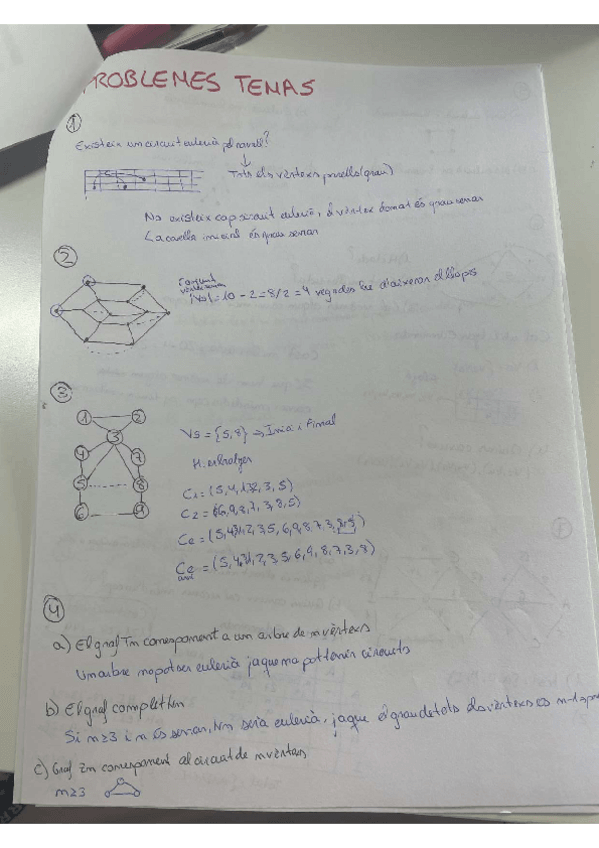 PROBLEMES TEMA 5
1
Existeix un circuit eulerià pel cavall?
Tots els vèrtexs parells (grau)
No existeix cap circuit eulerià, el vèrtex és grau senar
La casella inicial és grau senar
2
Conjunt
|Vs| = 10 - 2 = 8/2 = 4 vegades d'aixecar el llapis
3
1 2
3
4 7
5 8
6 9
Vs = {5, 8} → Inici i Final
H.
C1 = (5, 4, 3, 1, 2, 3, 5)
C2 = (6, 9, 8, 7, 3, 8, 5)
Ce = (5, 4, 3, 1, 2, 3, 5, 6, 9, 8, 7, 3, 8, 5)
Ce = (5, 4, 3, 1, 2, 3, 5, 6, 9, 8, 7, 3, 8)
4
a) El graf Tn corresponent a un arbre de n vèrtexs
Un arbre no pot ser eulerià ja que no pot tenir circuits
b) El graf complet Kn
Si n≥3 i n és senar, Kn seria eulerià, ja que el grau de tots els vèrtexs és n-1
c) Graf Zn corresponent al circuit de n vèrtexs
n≥3